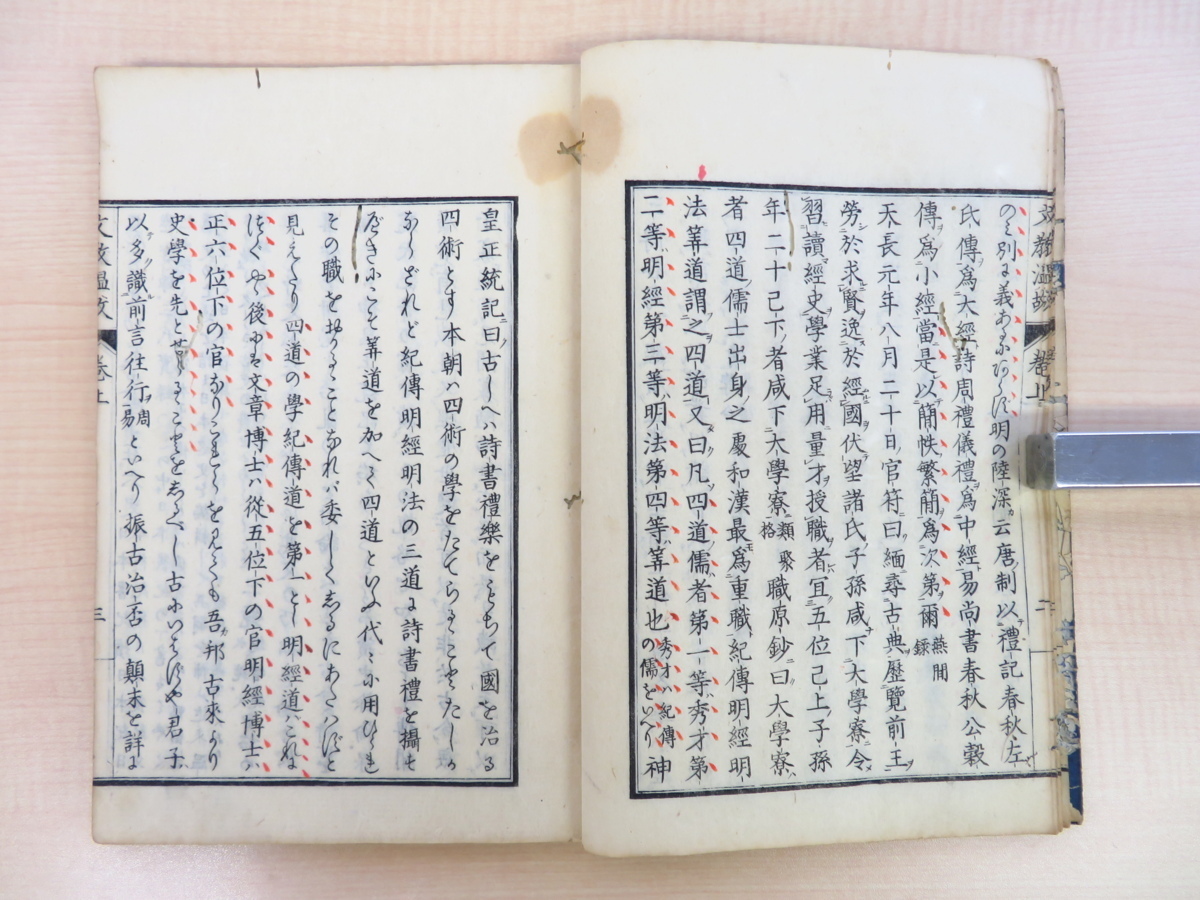 の別に義あるに明の陸深云唐制以禮記春秋左
氏傳爲大經詩周禮儀禮爲中經易尚書春秋公穀
傳爲小經當是以簡帙繁簡爲次第爾 燕間録
天長元年八月二十日官符曰緬尋古典歴覽前王
勞於求賢逸於經國伏望諸氏子孫咸下大學寮令
習讀經史學業足用量才授職者宜五位已上子孫
年二十已下者咸下大學寮 類聚格 職原鈔曰大學寮
者四道儒士出身之處和漢最爲重職紀傳明經明
法筭道謂之四道又曰凡四道儒者第一等秀才第
二等明經第三等明法第四等筭道也 秀才ハ紀傳の儒をいへり 神
皇正統記曰古しへハ詩書禮樂をもちて國を治る
四術とす本朝ハ四術の學をたてらるゝことたしか
ならざれど紀傳明經明法の三道に詩書禮を攝す
べきにこそ筭道を加へて四道といふ代々に用ひられ
その職を
見えたり四道の學紀傳道を第一とし明經道ハこれに
つぐや後にハ文章博士ハ從五位下の官明經博士ハ
正六位下の官なりこれらを見ても吾邦古來より
史學を先と
以多識前言往行 周易 といへり振古治否の顛末を詳に
卷上
三